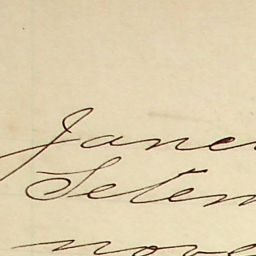 Janei
Setem
nove